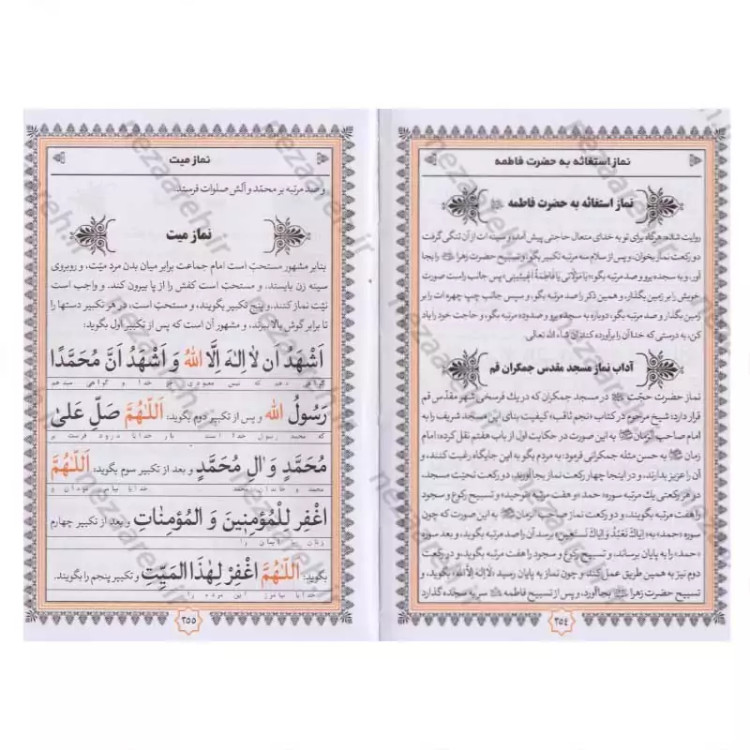 نماز استغاثه به حضرت فاطمه
نماز استغاثه به حضرت فاطمه
روایت شده، هرگاه برای تو به خدای متعال حاجتی پیش آمده و سینه ات از آن تنگی گرفت
دو رکعت نماز بخوان، و پس از سلام سه مرتبه تکبیر بگو و تسبیح حضرت زهرا را بجا
آور، و به سجده برو و صدمرتبه بگو: «یا مَوْلاتی یا فاطِمَةُ اَغیثینی» پس جانب راست صورت
خویش را بر زمین بگذار، و همین ذکر را صد مرتبه بگو، و سپس جانب چپ چهره ات را بر
زمین بگذار و صدمرتبه بگو، دوباره به سجده برو و صدوده مرتبه بگو، و حاجت خود را یاد
کن، به درستی که خدا آن را برآورده کند ان شاء الله تعالی.
آداب نماز مسجد مقدس جمکران قم
نماز حضرت حجّت در مسجد جمکران که در یک فرسخی شهر مقدّس قم
قرار دارد: شیخ مرحوم در کتاب «نجم ثاقب» کیفیت بنای این مسجد شریف را به
امام صاحب الزمان به این صورت در حکایت اول از باب هفتم نقل کرده: امام
به حسن مثله جمکرانی فرمود: به مردم بگو به این جایگاه رغبت کنند، و
آن را عزیز بدارند، و در اینجا چهار رکعت نماز بجا آورند، دو رکعت تحیّت مسجد،
در هر رکعتی یک مرتبه سوره حمد، و هفت مرتبه توحید، و تسبیح رکوع و سجود
را هفت مرتبه بگویند، و دو رکعت نماز امام زمان به این صورت که چون
سوره «حمد» به «اِیّاکَ نَعْبُدُ وَ اِیّاکَ نَسْتَعینُ» رسد آن را صد مرتبه بگوید، و پس از آن
«حمد» را به پایان برساند، و تسبیح رکوع و سجود را هفت مرتبه بگوید، و در رکعت
دوم نیز به همین طریق عمل کند، و چون نماز به پایان رسید «لا اله الا الله» بگوید، و
تسبیح حضرت زهرا بجا آورد، و پس از تسبیح فاطمه سر به سجده گذارد
۲۵۴
نماز میت
و صد مرتبه بر محمّد و آلش صلوات فرستد.
نماز میت
بنابر مشهور مستحبّ است امام جماعت برابر میان بدن مرد میّت، و روبروی
سینه زن بایستد، و مستحبّ است کفش را از پا بیرون کند. و واجب است
نیّت نماز کنند، و پنج تکبیر بگویند، و مستحبّ است، در هر تکبیر دستها را
تا برابر گوش بالا برند، و مشهور آن است که پس از تکبیر اول بگوید:
اَشْهَدُ اَن لا اِلهَ اِلَّا اللهُ وَ اَشْهَدُ اَنَّ مُحَمَّدًا
رَسُولُ الله و پس از تکبیر دوم بگوید: اَللّهُمَّ صَلِّ عَلیٰ
که محمد رسول خدا است بار خدایا درود فرست بر
مُحَمَّدٍ وَ الِ مُحَمَّدٍ و بعد از تکبیر سوم بگوید: اَللّهُمَّ
اغْفِر لِلْمُؤمِنینَ وَ المُؤمِناتِ و بعد از تکبیر چهارم
بگوید: اَللّهُمَّ اغْفِرْ لِهٰذَا المَیِّتِ و تکبیر پنجم را بگویند.
خدایا بیامرز این مرده را
۲۵۵
nezaareh.ir